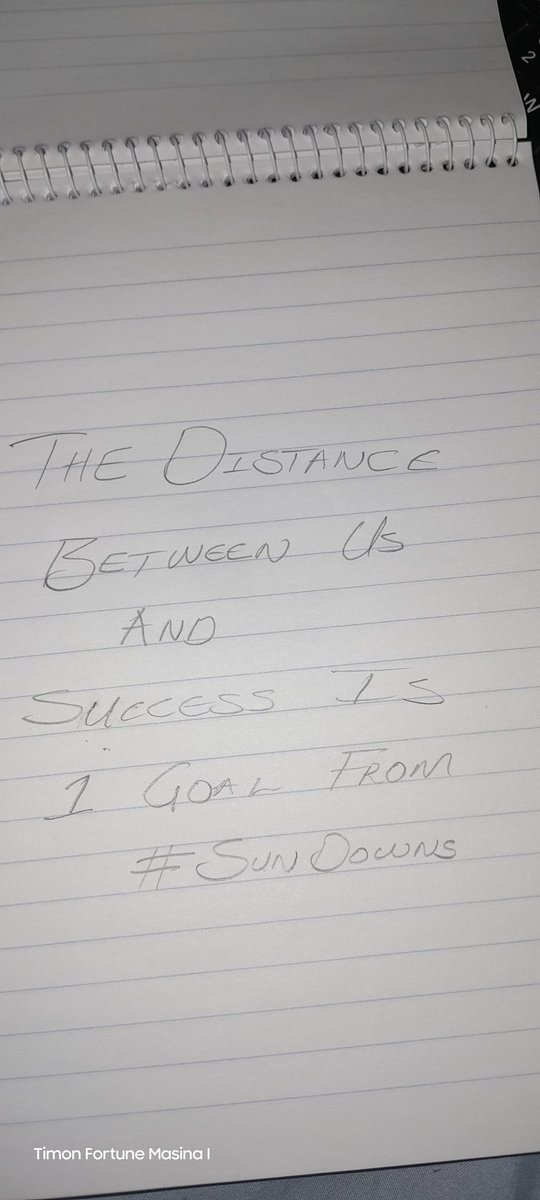 2
W
THE DISTANCE
BETWEEN US
AND
SUCCESS IS
1 GOAL FROM
#SUNDOWNS
Timon Fortune Masina I